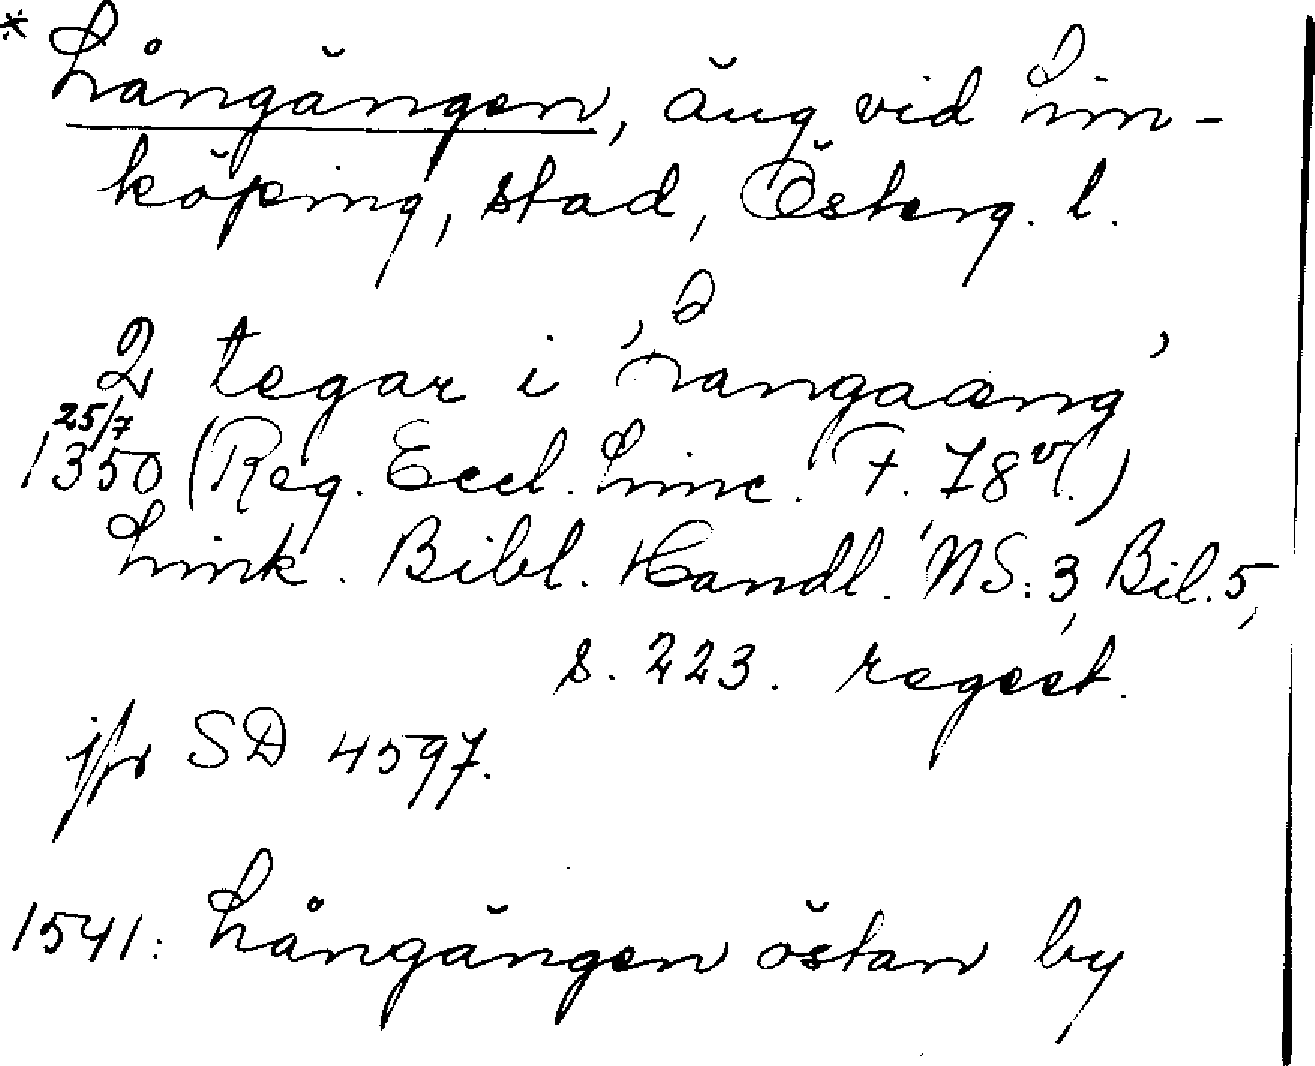 * Långängen, äng vid Lin-
köping, stad, Österg. l.
2 tegar i 'Langaæng'
25/7
1350 (Reg. Eccl. Linc. F. 78v.)
Link. Bibl. Handl. NS: 3, Bil. 5,
s. 223. regest.
jfr SD 4597.
1541: Långängen östan by